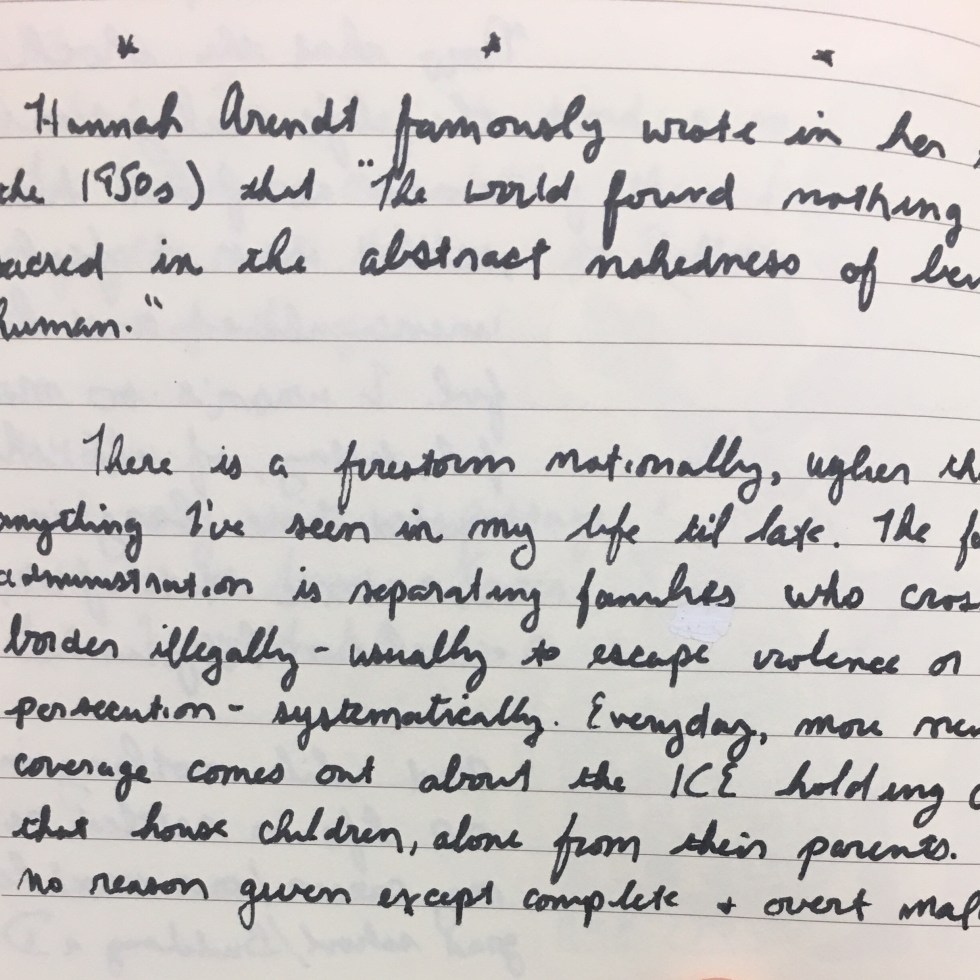 * * *
Hannah Arendt famously wrote in her
the 1950s) that "The world found nothing
sacred in the abstract nakedness of
human."
There is a firestorm nationally, uglier
anything I've seen in my life til late. The
administration is separating families who
border illegally - usually to escape violence or
persecution - systematically. Everyday, more
coverage comes out about the ICE holding
that house children, alone from their parents.
no reason given except complete + overt